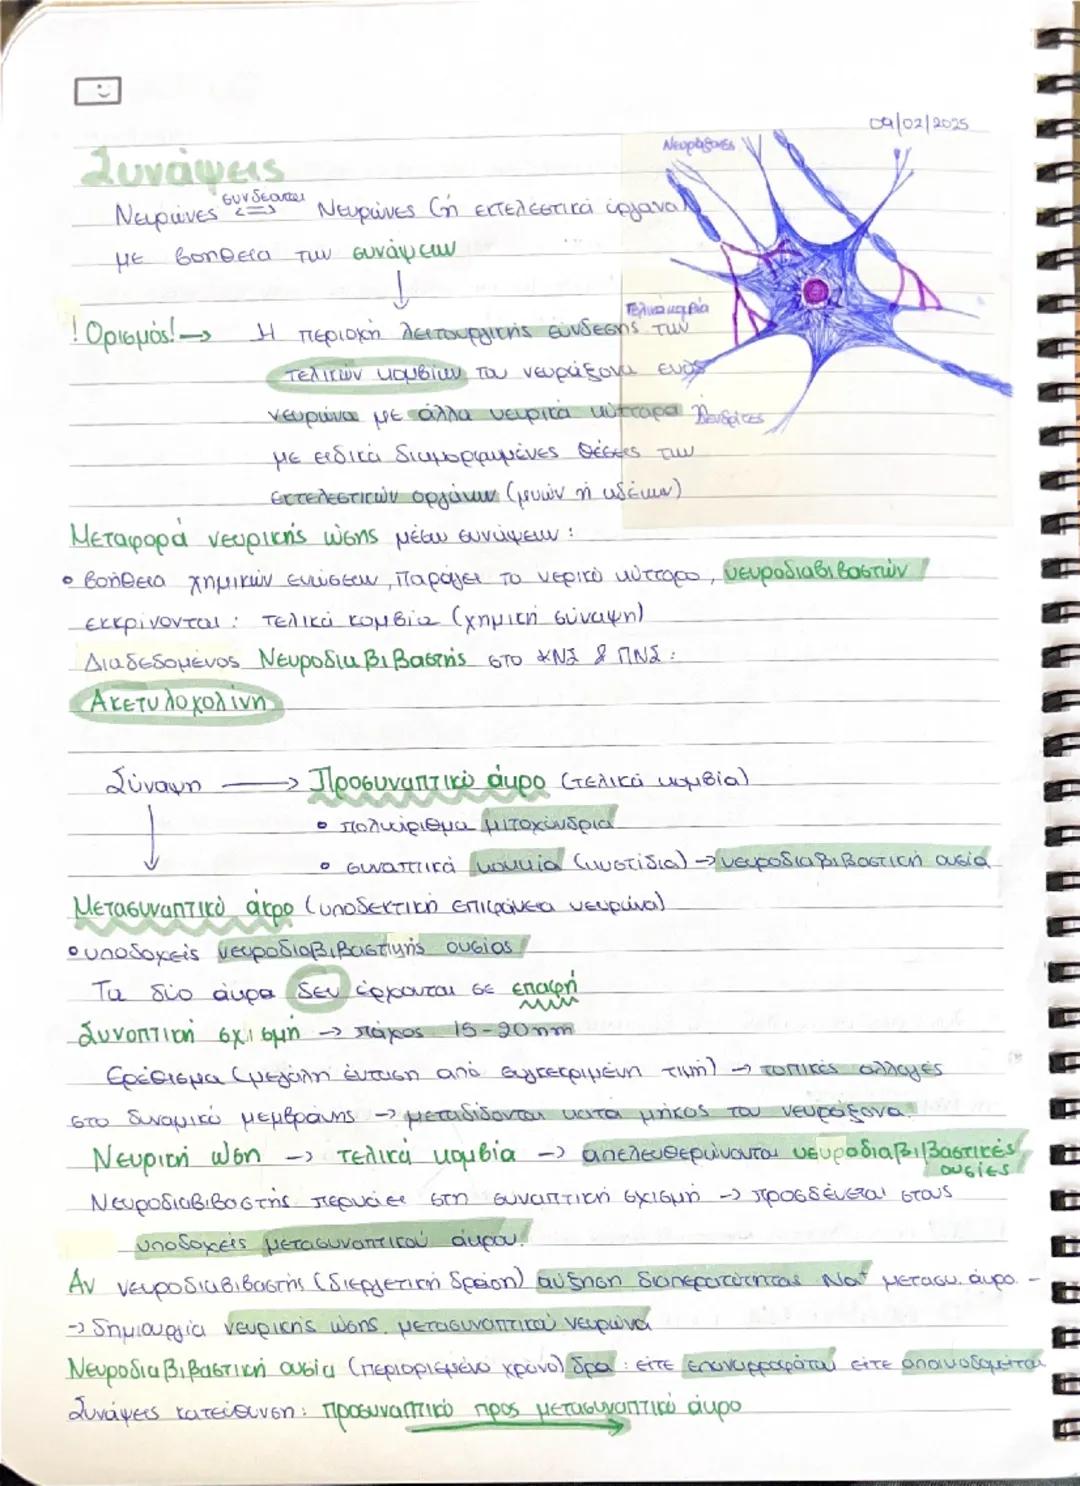 09/02/2025
Νευράξονες
Συνάψεις
Νευρώνες συνδέονται <=> Νευρώνες (ή εκτελεστικά όργανα)
με βοήθεια των συνάψεων
Τελικά κομβία
! Ορισμός! → Η περιοχή λειτουργικής σύνδεσης των
τελικών κομβίων του νευράξονα ενός
νευρώνα με άλλα νευρικά κύτταρα
Δενδρίτες
με ειδικά διαμορφωμένες θέσεις των
εκτελεστικών οργάνων (μυών ή αδένων)
Μεταφορά νευρικής ώσης μέσω συνάψεων :
• βοήθεια χημικών ενώσεων, παράγει το νερικό κύτταρο, νευροδιαβιβαστών
εκκρίνονται : τελικά κομβία (χημική σύναψη)
Διαδεδομένος Νευροδιαβιβαστής στο ΚΝΣ & ΠΝΣ :
Ακετυλοχολίνη
Σύναψη → Προσυναπτικό άκρο (τελικά κομβία)
• πολυάριθμα μιτοχόνδρια
• συναπτικά (κυστίδια) → νευροδιαβιβαστική ουσία
Μετασυναπτικό άκρο (υποδεκτική επιφάνεια νευρώνα)
• υποδοχείς νευροδιαβιβαστικής ουσίας
Τα δύο άκρα δεν έρχονται σε επαφή
Συναπτική σχισμή → πάχος 15-20nm
Ερέθισμα (μεγάλη ένταση από συγκεκριμένη τιμή) → τοπικές αλλαγές
στο δυναμικό μεμβράνης → μεταδίδονται κατά μήκος του νευράξονα.
Νευρική ώση → τελικά κομβία → απελευθερώνονται νευροδιαβιβαστικές
ουσίες
Νευροδιαβιβαστής περνάει στη συναπτική σχισμή → προσδένεται στους
υποδοχείς μετασυναπτικού άκρου.
Αν νευροδιαβιβαστής (διεργετική δράση) αύξηση διαπερατότητας Na+ μετασυ. άκρο -
→ δημιουργία νευρικής ώσης μετασυναπτικού νευρώνα
Νευροδιαβιβαστική ουσία (περιορισμένο χρόνο) δρα : είτε επαναρροφάται είτε αποικοδομείται
Συνάψεις κατεύθυνση : προσυναπτικό προς μετασυναπτικό άκρο